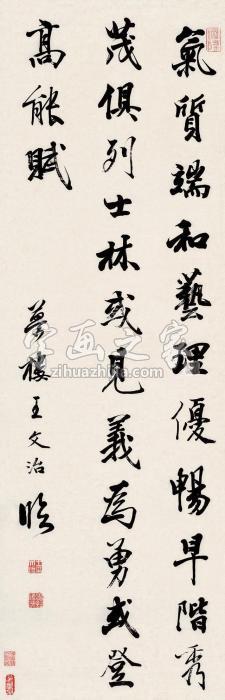 氣質端和藝理優暢早階秀
茂俱列士林或見義為勇或登
高能賦
夢樓王文治臨
字画之家
www.zihuazhijia.com